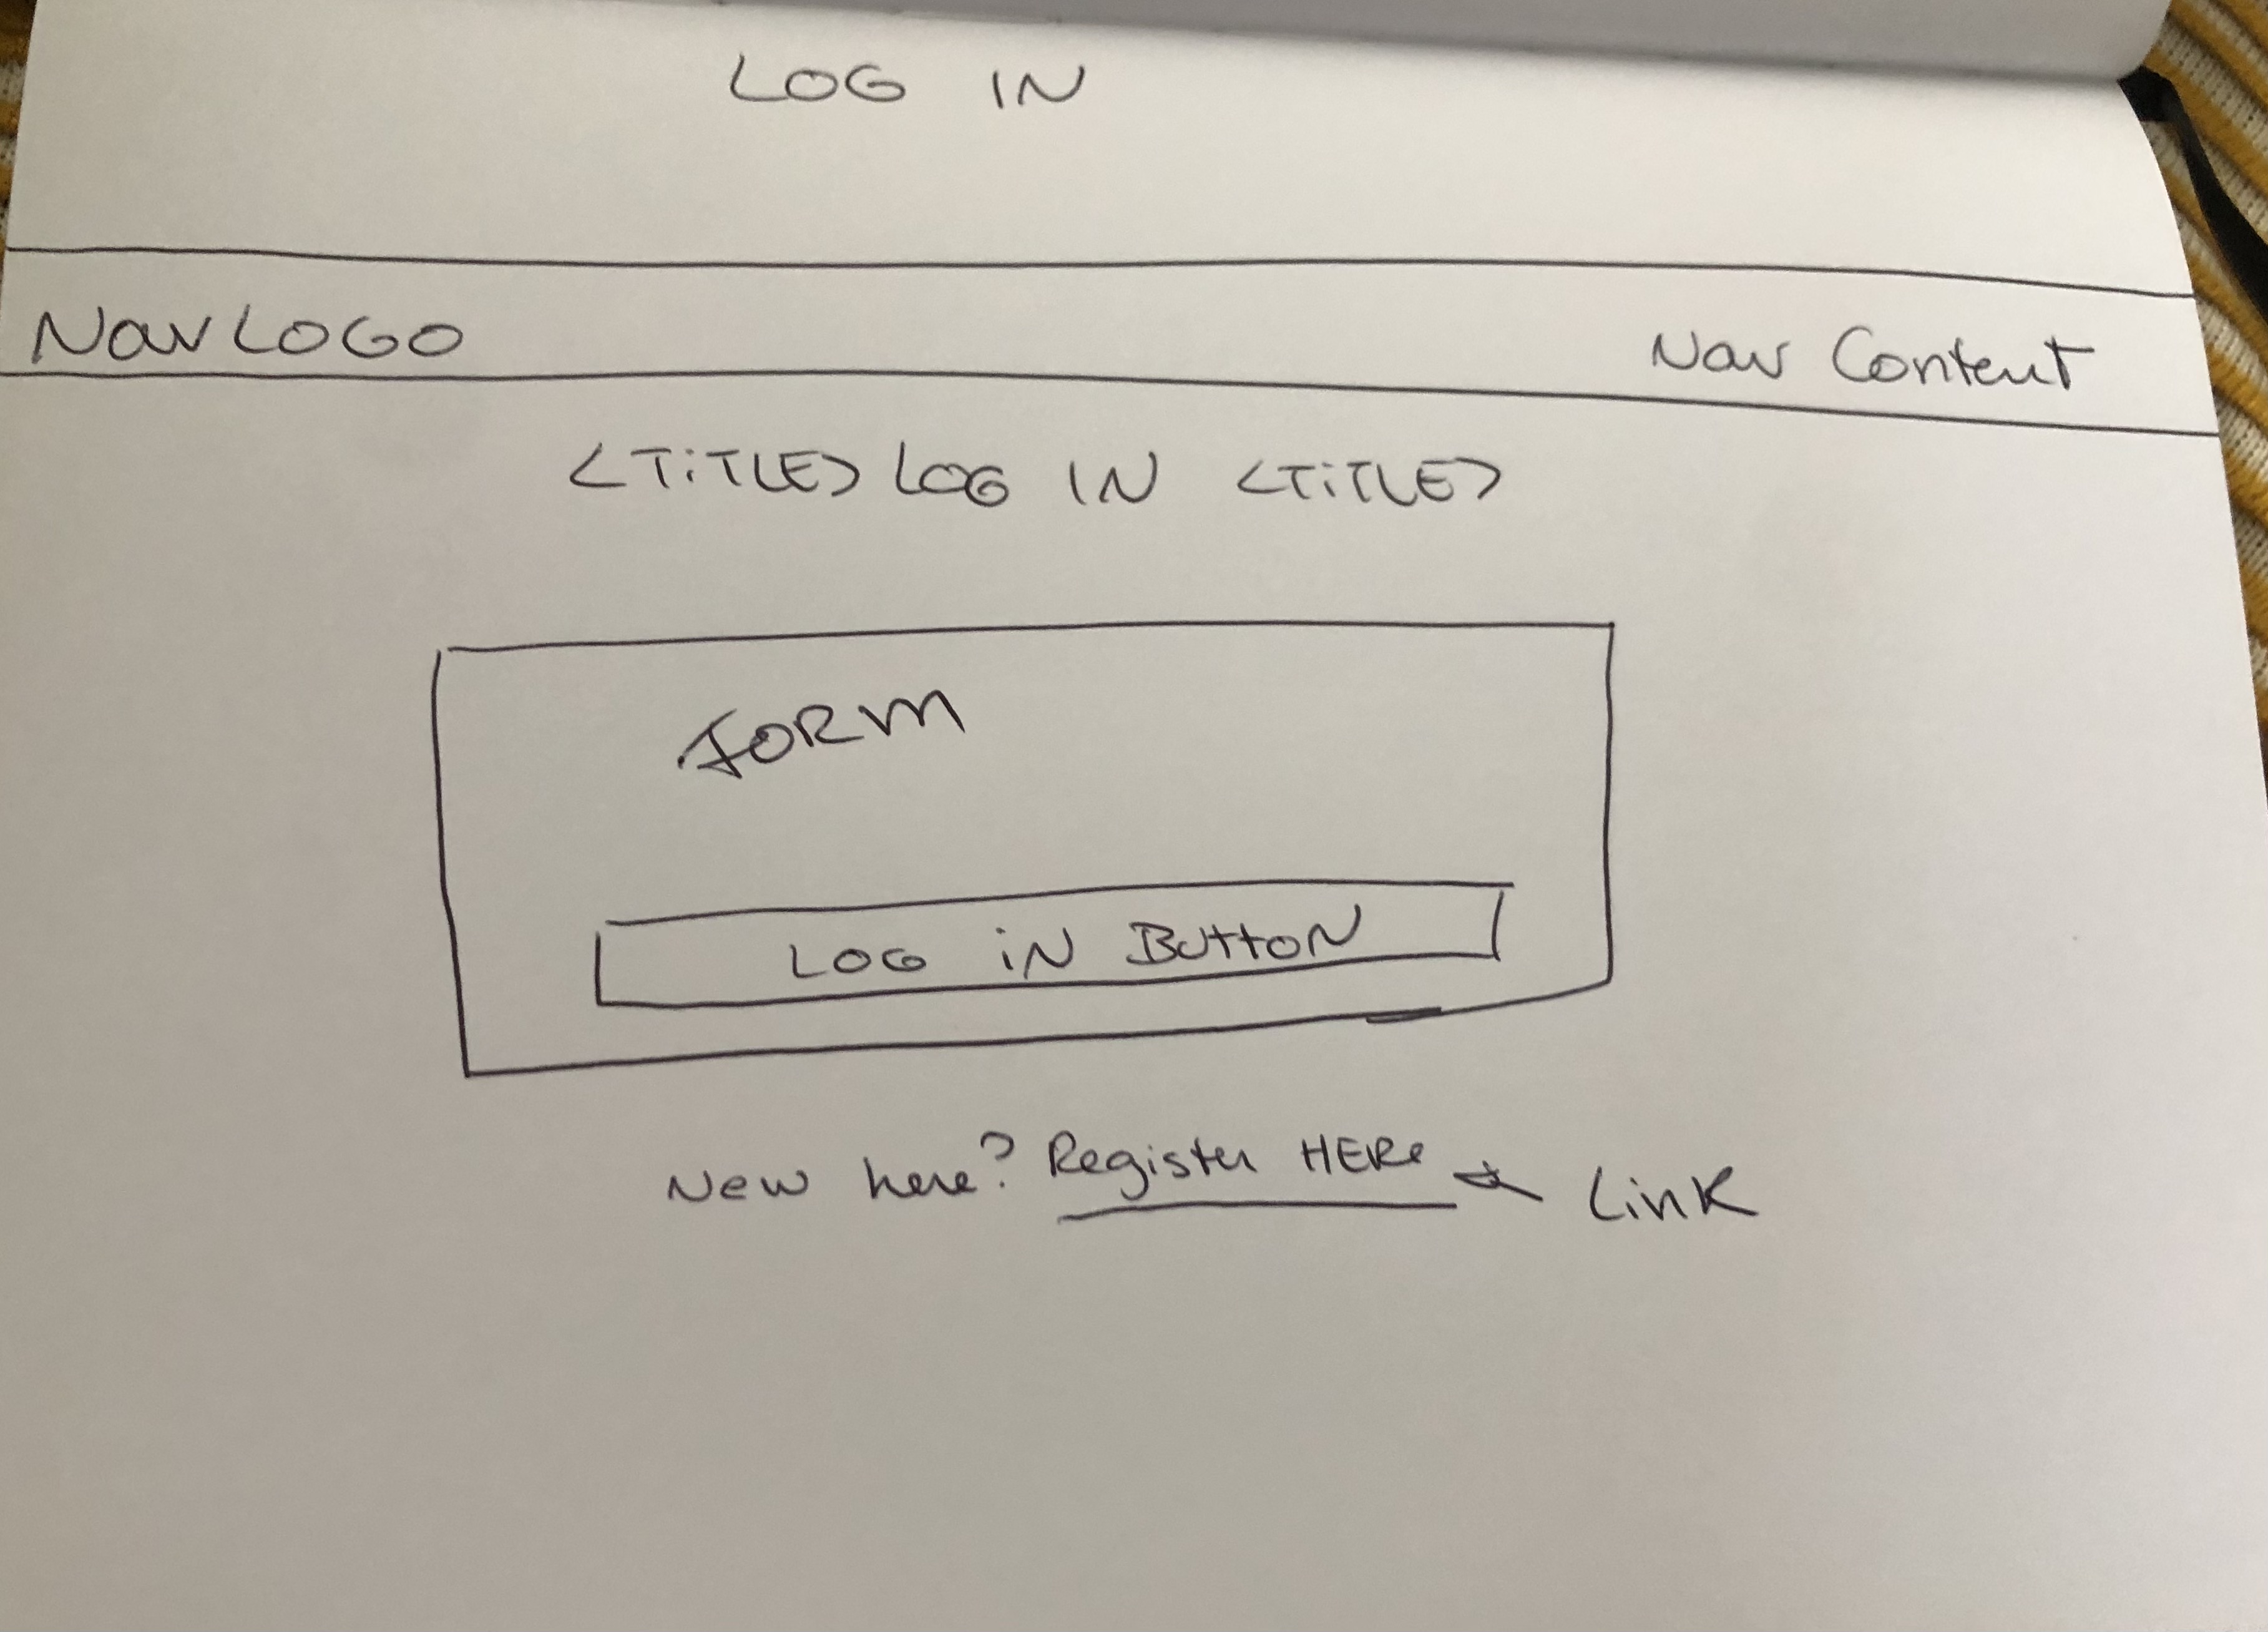 LOG IN
Nav LOGO
Nav Content
<TiTLE> LOG IN <TiTLE>
FORM
LOG iN BUttON
New here? Register HERe
Link